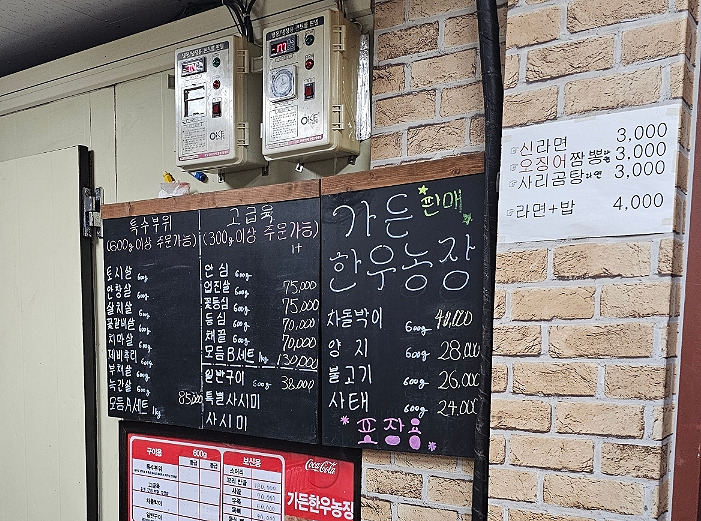 특수부위
(600g이상 주문가능)
토시살 600g
안창살 600g
살치살 600g
꽃갈비살 600g
치마살 600g
제비추리 600g
부채살 600g
늑간살 600g
모듬A세트 1kg 85,000
고급육
(300g이상 주문가능)
1+
안심 600g
업진살 600g 75,000
꽃등심 600g 75,000
등심 600g 70,000
채끝 600g 70,000
모듬B세트 1kg 130,000
일반구이 600g 38,000
특별사시미
사시미
가든 판매
한우농장
차돌박이 600g 40,000
양지 600g 28,000
불고기 600g 26,000
사태 600g 24,000
포장용
☞신라면 3,000
☞오징어짬뽕라면 3,000
☞사리곰탕라면 3,000
☞라면+밥 4,000
구이용 600g
특수부위
고급육
차돌박이
일반구이
보신용
소머리
꼬리 반골
사골
우족
Coca-Cola
가든한우농장
OKE
OKE